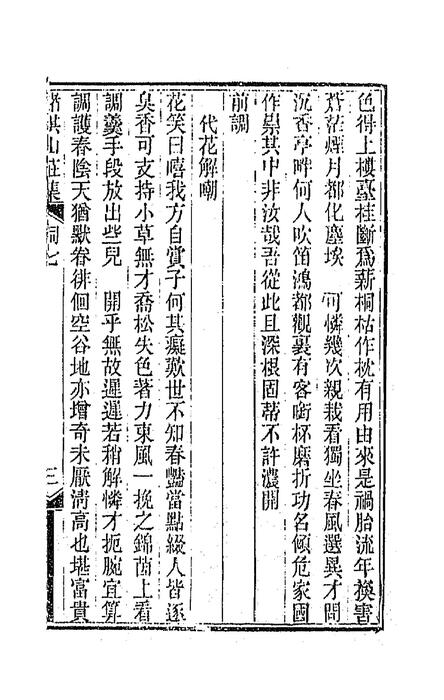 色得上樓臺桂斷爲薪桐枯作枕有用由來是禍胎流年換害
蒼茫煙月都化塵埃　可憐幾次親栽看獨坐春風選異才問
沉香亭畔何人吹笛鴻都觀裏有客銜杯磨折功名傾危家國
作祟其中非汝哉吾從此且深根固蒂不許濃開
前調
代花解嘲
花笑曰嘻我方自賞子何其癡歎世不知春豔當點綴人皆逐
臭香可支持小草無才喬松失色著力東風一挽之錦茵上看
調羹手段放出些兒　開乎無故遲遲若稍解憐才扼腕宜算
調護春陰天猶默眷徘徊空谷地亦增奇未厭淸高也堪富貴
睹棋山莊集　詞七　三